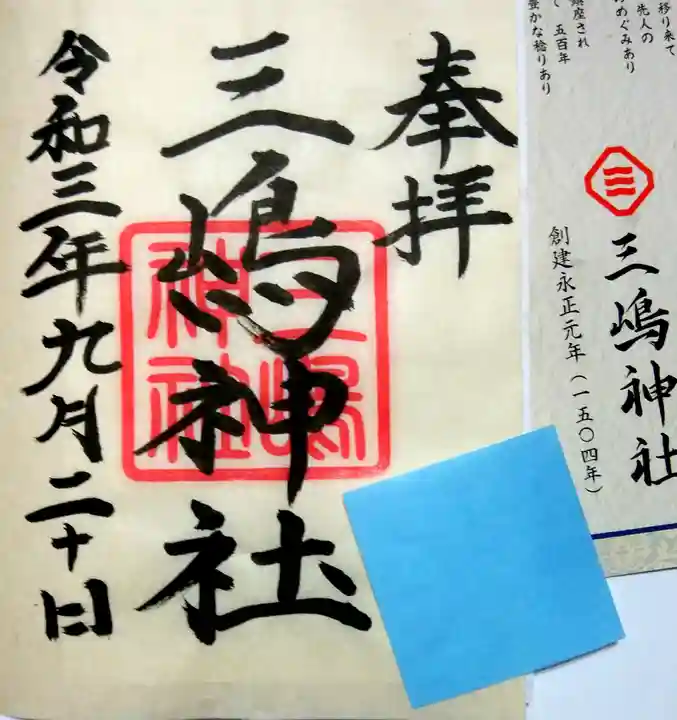 奉拝
三嶋神社
令和三年九月二十日
三嶋
神社
移り来て
先人の
めぐみあり
鎮座され
五百年
豊かな稔りあり
三嶋神社
創建永正元年（一五〇四年）